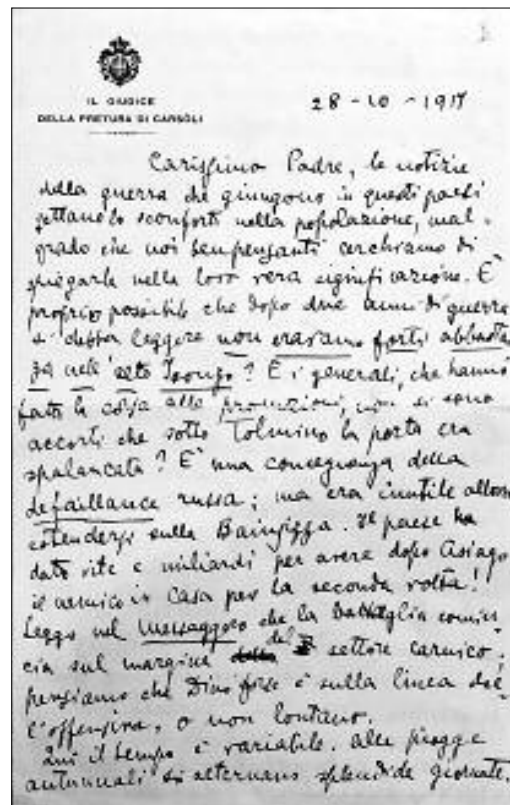 IL GIUDICE
DELLA PRETURA DI CARSÒLI
28-10-1917
Carissimo Padre, le notizie
della guerra che giungono in questi paesi
gettano lo sconforto nella popolazione, mal-
grado che noi benpensanti cerchiamo di
spiegarle nella loro vera significazione. È
proprio possibile che dopo due anni di guerra
si debba leggere non eravamo forti abbastan
za nell'alto Isonzo? E i generali, che hanno
fatto la corsa alle promozioni, non si sono
accorti che sotto Tolmino la porta era
spalancata? È una conseguenza della
défaillance russa; ma era inutile allora
estendersi sulla Bainsizza. Il paese ha
dato vite e miliardi per avere dopo Asiago
il nemico in casa per la seconda volta!
Leggo nel Messaggero che la battaglia comin
cia sul margine del settore carnico;
pensiamo che Dino forse è sulla linea del
l'offensiva, o non lontano.
Qui il tempo è variabile. Alle piogge
autunnali si alternano splendide giornate.